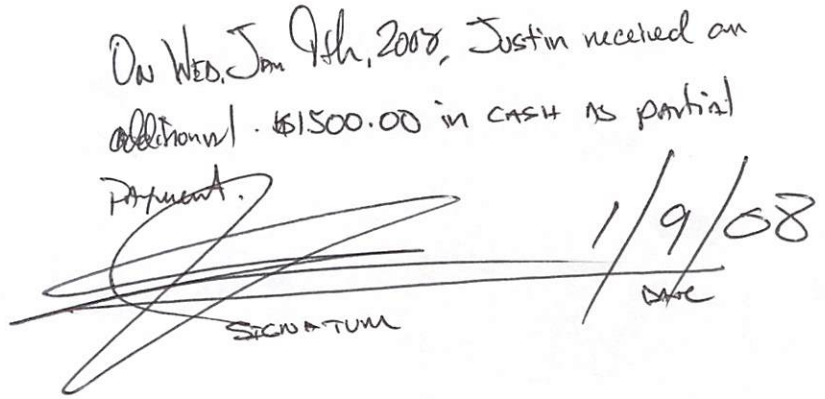 On Wed, Jan 9th, 2008, Justin received an
additional $1500.00 in CASH AS partial
Payment.
1/9/08
SIGNATURE
DATE